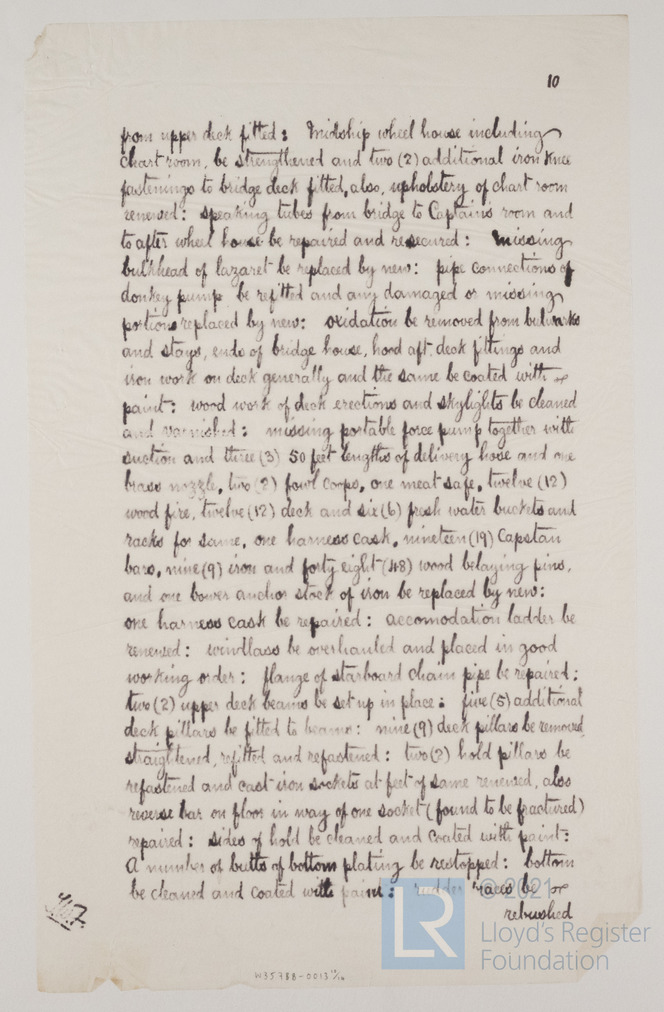 10
from upper deck fitted: Midship wheel house including
chart room, be strengthened and two (2) additional iron knee
fastenings to bridge deck fitted, also, upholstery of chart room
renewed: speaking tubes from bridge to Captain's room and
to after wheel house be repaired and resecured: Missing
bulkhead of lazaret be replaced by new: pipe connections of
donkey pump be refitted and any damaged or missing
portions replaced by new: oxidation be removed from bulwarks
and stays, ends of bridge house, hood aft, deck fittings and
iron work on deck generally and the same be coated with
paint: wood work of deck erections and skylights be cleaned
and varnished: missing portable force pump together with
suction and three (3) 50 feet lengths of delivery hose and one
brass nozzle, two (2) fowl coops, one meat safe, twelve (12)
wood fire, twelve (12) deck and six (6) fresh water buckets and
racks for same, one harness cask, nineteen (19) Capstan
bars, nine (9) iron and forty eight (48) wood belaying pins,
and one bower anchor stock of iron be replaced by new:
one harness cask be repaired: accomodation ladder be
renewed: windlass be overhauled and placed in good
working order: flange of starboard chain pipe be repaired:
two (2) upper deck beams be set up in place: five (5) additional
deck pillars be fitted to beams: nine (9) deck pillars be removed,
straightened, refitted and refastened: two (2) hold pillars be
refastened and cast iron sockets at feet of same renewed, also
reverse bar on floor in way of one socket (found to be fractured)
repaired: sides of hold be cleaned and coated with paint:
A number of butts of bottom plating be restopped: bottom
be cleaned and coated with paint: rudder braces be
rebushed
W35788-0013 10/16
LR
© 2021
Lloyd's Register
Foundation